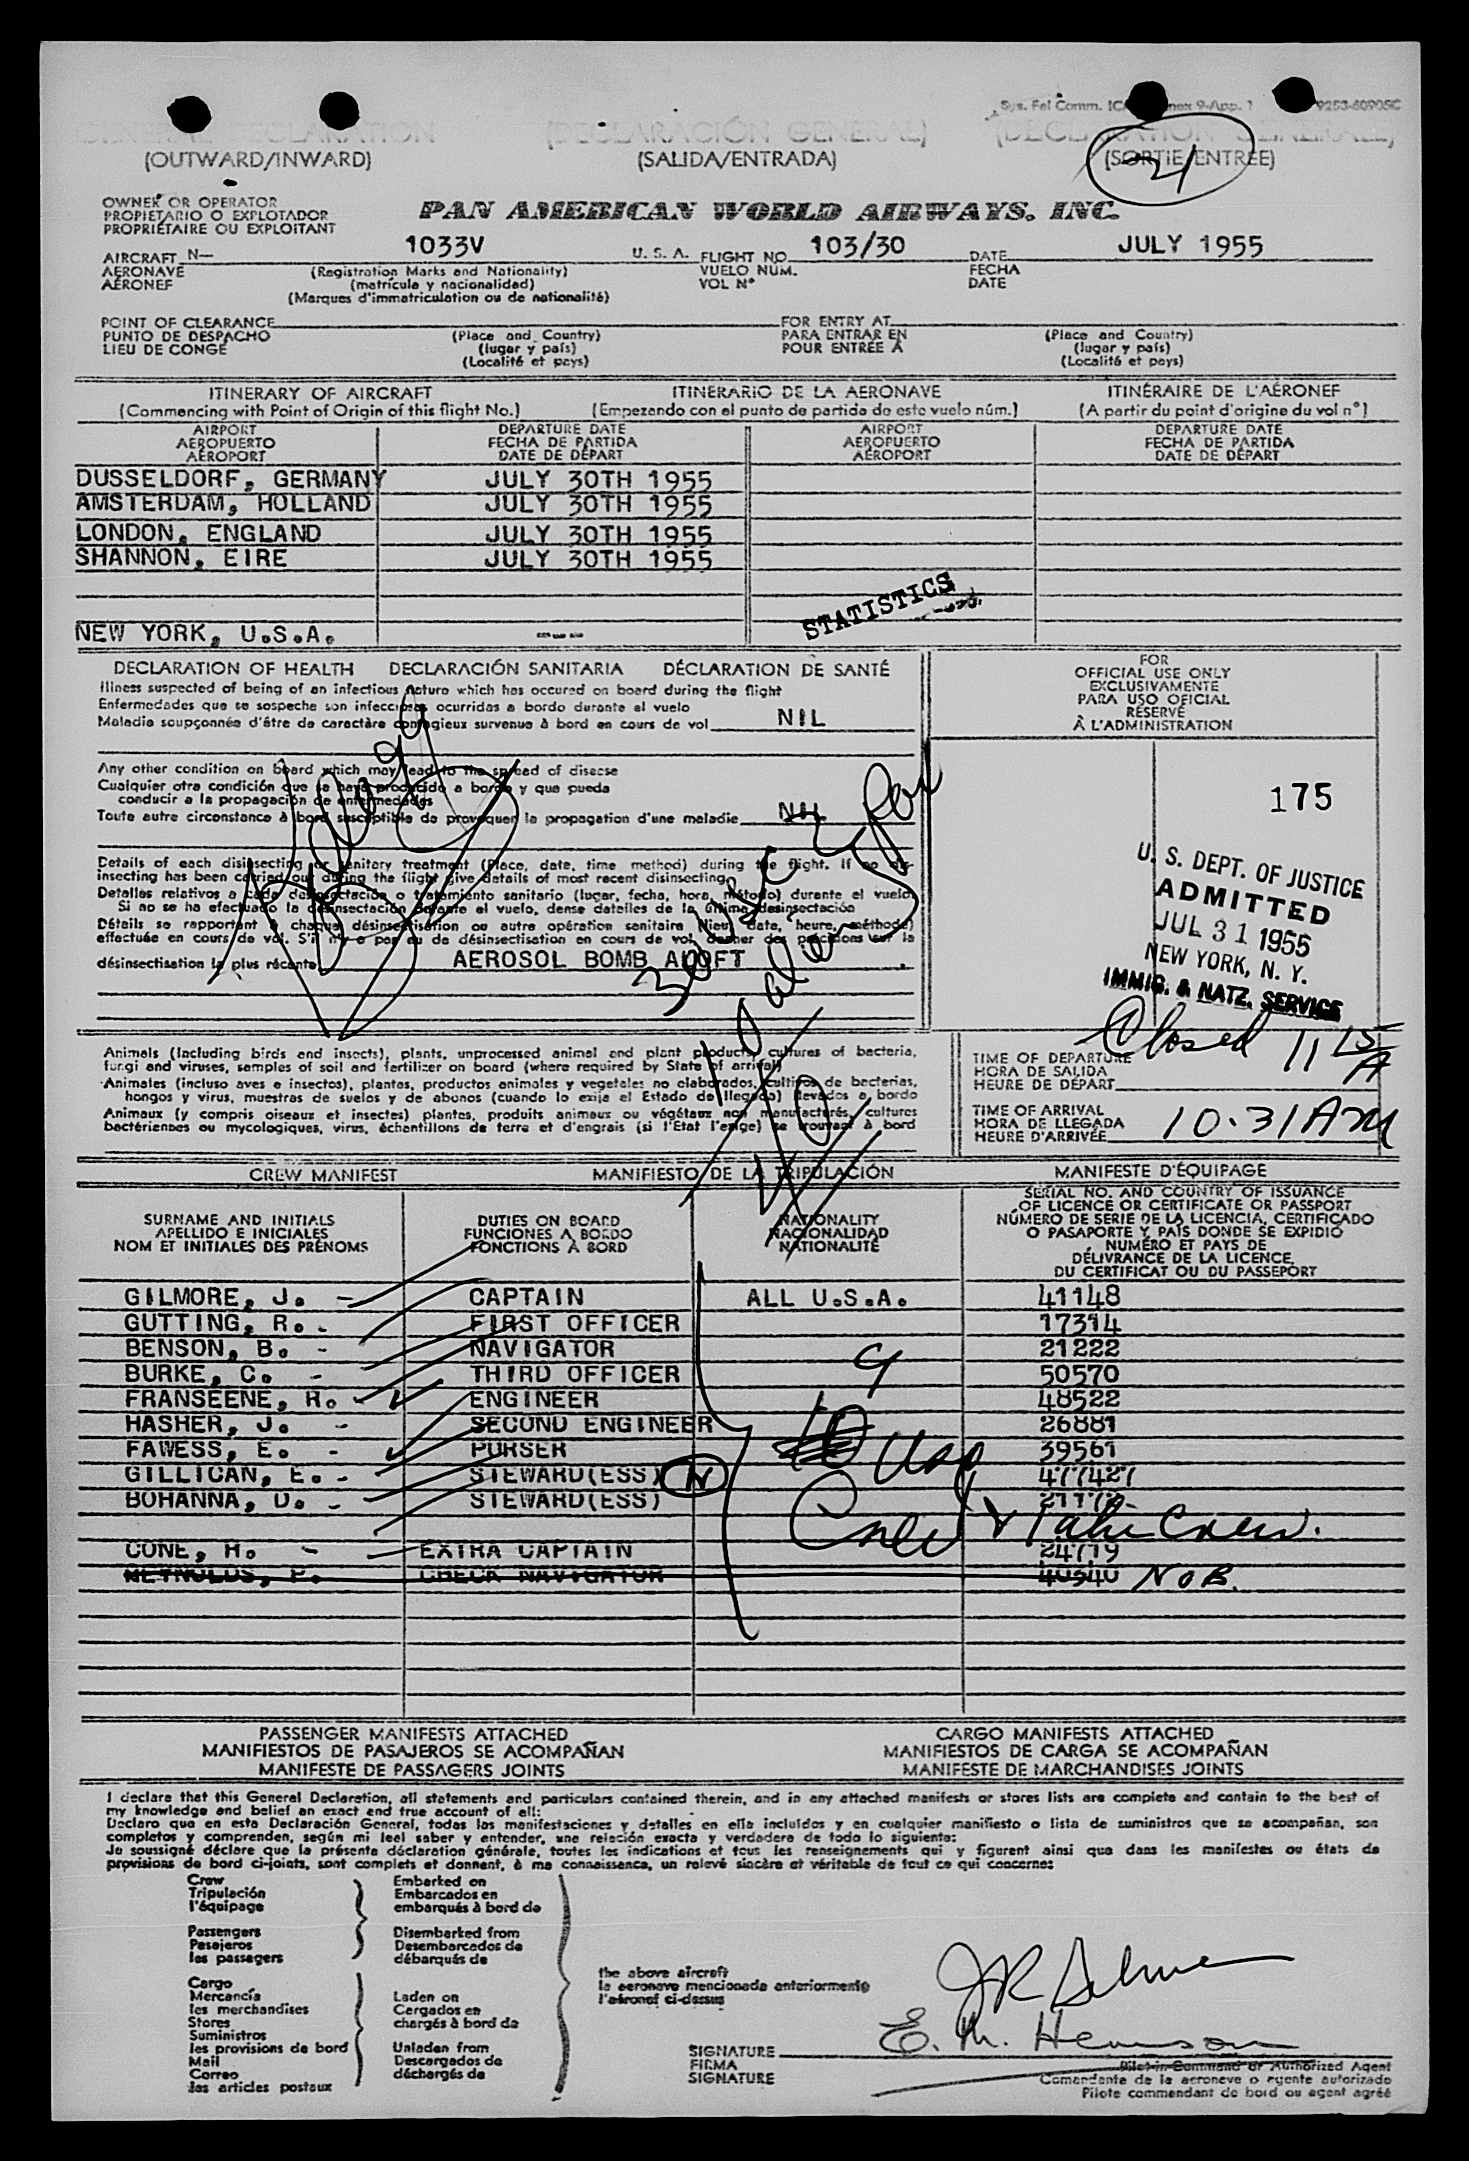 Sys. Fel Comm.
9253-60905C
(OUTWARD/INWARD) (SALIDA/ENTRADA) (SORTIE/ENTRÉE)
21
OWNER OR OPERATOR
PROPIETARIO O EXPLOTADOR
PROPRIÉTAIRE OU EXPLOITANT
PAN AMERICAN WORLD AIRWAYS, INC.
AIRCRAFT N— 1033V U. S. A. FLIGHT NO. 103/30 DATE JULY 1955
AERONAVE (Registration Marks and Nationality) VUELO NUM. FECHA
AÉRONEF (matrícula y nacionalidad) VOL N° DATE
(Marques d'immatriculation ou de nationalité)
POINT OF CLEARANCE FOR ENTRY AT
PUNTO DE DESPACHO (Place and Country) PARA ENTRAR EN (Place and Country)
LIEU DE CONGÉ (lugar y país) POUR ENTRÉE A (lugar y país)
(Localité et pays) (Localité et pays)
ITINERARY OF AIRCRAFT ITINERARIO DE LA AERONAVE ITINÉRAIRE DE L'AÉRONEF
(Commencing with Point of Origin of this flight No.) (Empezando con el punto de partida de este vuelo núm.) (A partir du point d'origine du vol n°)
AIRPORT DEPARTURE DATE AIRPORT DEPARTURE DATE
AEROPUERTO FECHA DE PARTIDA AEROPUERTO FECHA DE PARTIDA
AÉROPORT DATE DE DÉPART AÉROPORT DATE DE DÉPART
DUSSELDORF, GERMANY JULY 30TH 1955
AMSTERDAM, HOLLAND JULY 30TH 1955
LONDON, ENGLAND JULY 30TH 1955
SHANNON, EIRE JULY 30TH 1955
STATISTICS
NEW YORK, U.S.A. ---
DECLARATION OF HEALTH DECLARACIÓN SANITARIA DÉCLARATION DE SANTÉ
Illness suspected of being of an infectious nature which has occured on board during the flight
Enfermedades que se sospeche son infecciosas ocurridas a bordo durante el vuelo
Maladie soupçonnée d'être de caractère contagieux survenue à bord en cours de vol NIL
FOR
OFFICIAL USE ONLY
EXCLUSIVAMENTE
PARA USO OFICIAL
RÉSERVÉ
À L'ADMINISTRATION
Any other condition on board which may lead to the spread of disease
Cualquier otra condición que se haya producido a bordo y que pueda
conducir a la propagación de enfermedades
Toute autre circonstance à bord susceptible de provoquer la propagation d'une maladie NIL
175
Details of each disinsecting or sanitary treatment (Place, date, time method) during the flight. If no dis-
insecting has been carried out during the flight give details of most recent disinsecting
Detalles relativos a cada desinsectación o tratamiento sanitario (lugar, fecha, hora, método) durante el vuelo
Si no se ha efectuado la desinsectación durante el vuelo, dense detalles de la última desinsectación
Détails se rapportant à chaque désinsectisation ou autre opération sanitaire (lieu, date, heure, méthode)
effectuée en cours de vol. S'il n'y a pas eu de désinsectisation en cours de vol, donner des précisions sur la
désinsectisation la plus récente AEROSOL BOMB ALOFT
U. S. DEPT. OF JUSTICE
ADMITTED
JUL 31 1955
NEW YORK, N. Y.
IMMIG. & NATZ. SERVICE
Closed 11 15/A
Animals (Including birds and insects), plants, unprocessed animal and plant products, cultures of bacteria,
fungi and viruses, samples of soil and fertilizer on board (where required by State of arrival)
Animales (incluso aves e insectos), plantas, productos animales y vegetales no elaborados, cultivos de bacterias,
hongos y virus, muestras de suelos y de abonos (cuando lo exija el Estado de llegada) llevados a bordo
Animaux (y compris oiseaux et insectes) plantes, produits animaux ou végétaux non manufacturés, cultures
bactériennes ou mycologiques, virus, échantillons de terre et d'engrais (si l'État l'exige) se trouvant à bord
TIME OF DEPARTURE
HORA DE SALIDA
HEURE DE DÉPART
TIME OF ARRIVAL
HORA DE LLEGADA 10.31 AM
HEURE D'ARRIVÉE
CREW MANIFEST MANIFIESTO DE LA TRIPULACIÓN MANIFESTE D'ÉQUIPAGE
SURNAME AND INITIALS
APELLIDO E INICIALES
NOM ET INITIALES DES PRÉNOMS
DUTIES ON BOARD
FUNCIONES A BORDO
FONCTIONS À BORD
NATIONALITY
NACIONALIDAD
NATIONALITÉ
SERIAL NO. AND COUNTRY OF ISSUANCE
OF LICENCE OR CERTIFICATE OR PASSPORT
NÚMERO DE SERIE DE LA LICENCIA, CERTIFICADO
O PASAPORTE Y PAÍS DONDE SE EXPIDIÓ
NUMÉRO ET PAYS DE
DÉLIVRANCE DE LA LICENCE,
DU CERTIFICAT OU DU PASSEPORT
GILMORE, J. CAPTAIN ALL U.S.A. 41148
GUTTING, R. FIRST OFFICER 17314
BENSON, B. NAVIGATOR 21222
BURKE, C. THIRD OFFICER 9 50570
FRANSEENE, R. ENGINEER 48522
HASHER, J. SECOND ENGINEER 26881
FAWESS, E. PURSER 39561
GILLICAN, E. STEWARD(ESS) N 477427
BOHANNA, D. STEWARD(ESS)
CONE, H. EXTRA CAPTAIN 24719
REYNOLDS, P. CHECK NAVIGATOR 40340 NOB.
PASSENGER MANIFESTS ATTACHED CARGO MANIFESTS ATTACHED
MANIFIESTOS DE PASAJEROS SE ACOMPAÑAN MANIFIESTOS DE CARGA SE ACOMPAÑAN
MANIFESTE DE PASSAGERS JOINTS MANIFESTE DE MARCHANDISES JOINTS
I declare that this General Declaration, all statements and particulars contained therein, and in any attached manifests or stores lists are complete and contain to the best of
my knowledge and belief an exact and true account of all:
Declaro que en esta Declaración General, todas las manifestaciones y detalles en ella incluídos y en cualquier manifiesto o lista de suministros que se acompañan, son
completos y comprenden, según mi leal saber y entender, una relación exacta y verdadera de todo lo siguiente:
Je soussigné déclare que la présente déclaration générale, toutes les indications et tous les renseignements qui y figurent ainsi que dans les manifestes ou états de
provisions de bord ci-joints, sont complets et donnent, à ma connaissance, un relevé sincère et véritable de tout ce qui concerne:
Crew Embarked on
Tripulación Embarcados en
l'équipage embarqués à bord de
Passengers Disembarked from
Pasajeros Desembarcados de
les passagers débarqués de
the above aircraft
la aeronave mencionada anteriormente
l'aéronef ci-dessus
Cargo
Mercancía Laden on
les merchandises Cargados en
Stores chargés à bord de
Suministros
les provisions de bord Unladen from
Mail Descargados de
Correo déchargés de
les articles postaux
E. M.
SIGNATURE
FIRMA Pilot-in-Command or Authorized Agent
SIGNATURE Comandante de la aeronave o agente autorizado
Pilote commandant de bord ou agent agréé